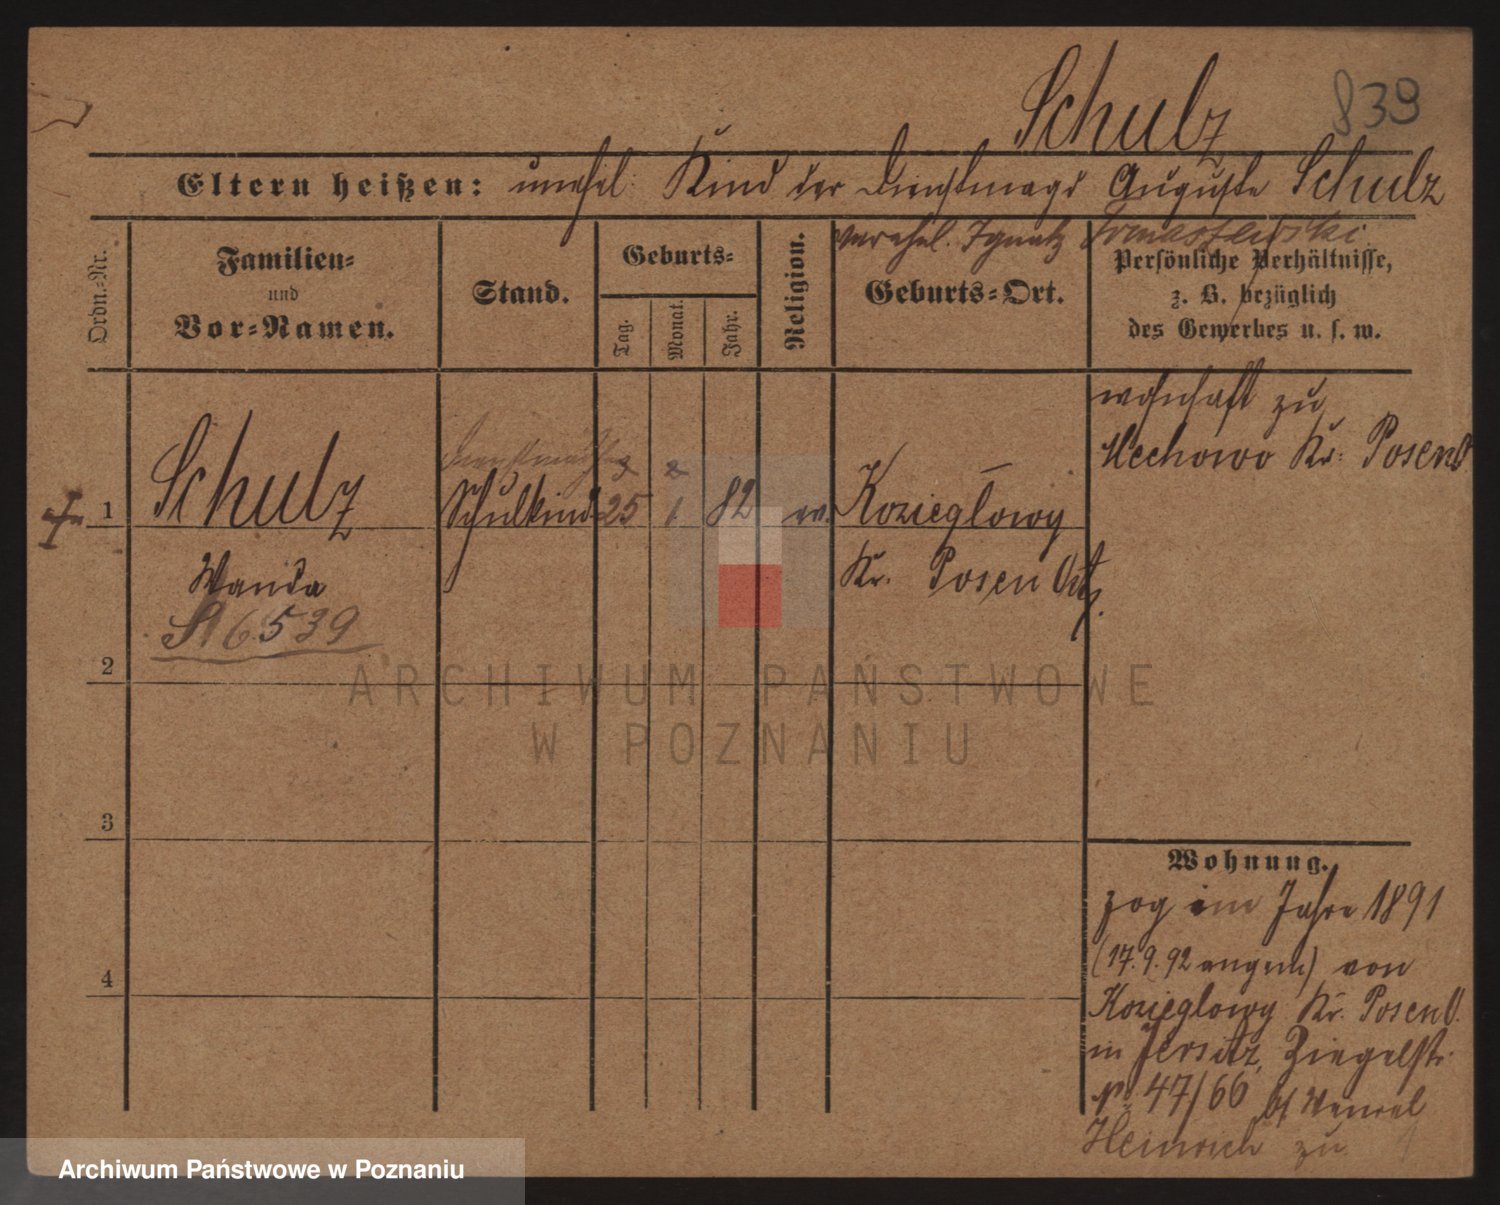 Schulz 839
Eltern heißen: unehel: Kind der Dienstmagd Auguste Schulz
verehel. Ignatz Tomaszewski
Ordn.-Nr.
Familien-
und
Vor-Namen.
Stand.
Geburts-
Tag.
Monat.
Jahr.
Religion.
Geburts-Ort.
Persönliche Verhältnisse,
z. B. bezüglich
des Gewerbes u. s. w.
wohnhaft zu
Mechowo Kr: Posen O
1 Schulz Schulkind 25 1 82 ev. Koziegłowy
Wanda Kr. Posen Ost
6539
2
3
4
Wohnung.
zog im Jahre 1891
(17.9.92 angem) von
Kozieglowy Kr. Posen O.
in Jersitz, Ziegelstr.
No 47/66 bei
Heinrich zu
ARCHIWUM PAŃSTWOWE
W POZNANIU
Archiwum Państwowe w Poznaniu